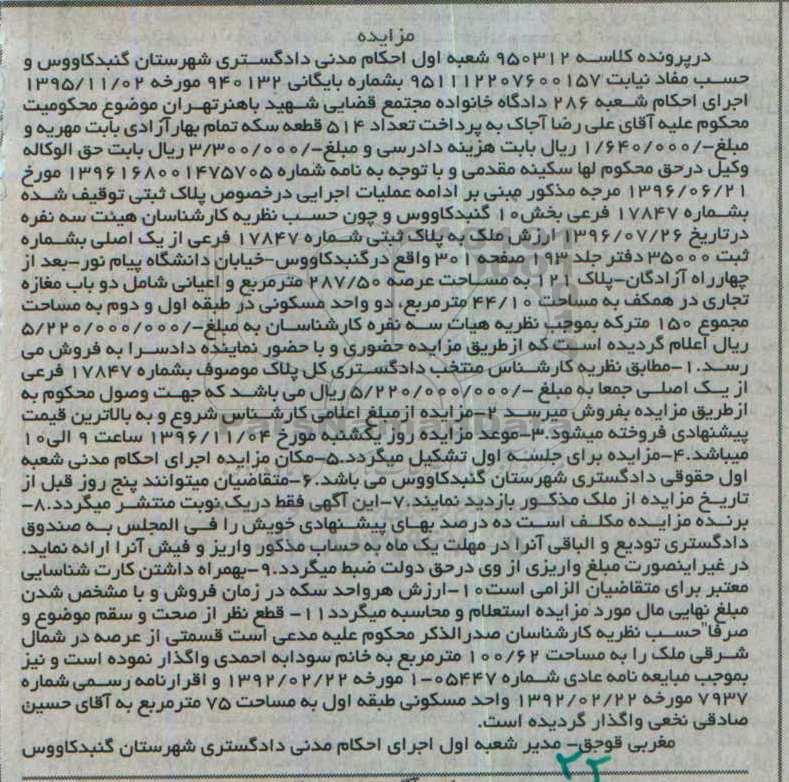 مزایده
درپرونده کلاسه ۹۵۰۳۱۲ شعبه اول احکام مدنی دادگستری شهرستان گنبدکاووس و
حسب مفاد نیابت ۹۵۱۱۱۲۲۰۷۶۰۰۱۵۷ بشماره بایگانی ۹۴۰۱۳۲ مورخه ۱۳۹۵/۱۱/۰۲
اجرای احکام شعبه ۲۸۶ دادگاه خانواده مجتمع قضایی شهید باهنرتهران موضوع محکومیت
محکوم علیه آقای علی رضا آجاک به پرداخت تعداد ۵۱۴ قطعه سکه تمام بهارآزادی بابت مهریه و
مبلغ-/۱/۶۴۰/۰۰۰ ریال بابت هزینه دادرسی و مبلغ-/۳/۳۰۰/۰۰۰ ریال بابت حق الوکاله
وکیل درحق محکوم لها سکینه مقدمی و با توجه به نامه شماره ۱۳۹۶۱۶۸۰۰۱۴۷۵۷۰۵ مورخ
۱۳۹۶/۰۶/۲۱ مرجه مذکور مبنی بر ادامه عملیات اجرایی درخصوص پلاک ثبتی توقیف شده
بشماره ۱۷۸۴۷ فرعی بخش۱۰ گنبدکاووس و چون حسب نظریه کارشناسان هیئت سه نفره
درتاریخ ۱۳۹۶/۰۷/۲۶ ارزش ملک به پلاک ثبتی شماره ۱۷۸۴۷ فرعی از یک اصلی بشماره
ثبت ۳۵۰۰۰ دفتر جلد ۱۹۳ صفحه ۳۰۱ واقع درگنبدکاووس-خیابان دانشگاه پیام نور-بعد از
چهارراه آزادگان-پلاک ۱۲۱ به مساحت عرصه ۲۸۷/۵۰ مترمربع و اعیانی شامل دو باب مغازه
تجاری در همکف به مساحت ۴۴/۱۰ مترمربع، دو واحد مسکونی در طبقه اول و دوم به مساحت
مجموع ۱۵۰ مترکه بموجب نظریه هیات سه نفره کارشناسان به مبلغ-/۵/۲۲۰/۰۰۰/۰۰۰
ریال اعلام گردیده است که ازطریق مزایده حضوری و با حضور نماینده دادسرا به فروش می
رسد.۱-مطابق نظریه کارشناس منتخب دادگستری کل پلاک موصوف بشماره ۱۷۸۴۷ فرعی
از یک اصلی جمعا به مبلغ -/۵/۲۲۰/۰۰۰/۰۰۰ ریال می باشد که جهت وصول محکوم به
ازطریق مزایده بفروش میرسد ۲-مزایده ازمبلغ اعلامی کارشناس شروع و به بالاترین قیمت
پیشنهادی فروخته میشود.۳-موعد مزایده روز یکشنبه مورخ ۱۳۹۶/۱۱/۰۴ ساعت ۹ الی۱۰
میباشد.۴-مزایده برای جلسه اول تشکیل میگردد.۵-مکان مزایده اجرای احکام مدنی شعبه
اول حقوقی دادگستری شهرستان گنبدکاووس می باشد.۶-متقاضیان میتوانند پنج روز قبل از
تاریخ مزایده از ملک مذکور بازدید نمایند.۷-این آگهی فقط دریک نوبت منتشر میگردد.۸-
برنده مزایده مکلف است ده درصد بهای پیشنهادی خویش را فی المجلس به صندوق
دادگستری تودیع و الباقی آنرا در مهلت یک ماه به حساب مذکور واریز و فیش آنرا ارائه نماید.
در غیراینصورت مبلغ واریزی از وی درحق دولت ضبط میگردد.۹-بهمراه داشتن کارت شناسایی
معتبر برای متقاضیان الزامی است۱۰-ارزش هرواحد سکه در زمان فروش و با مشخص شدن
مبلغ نهایی مال مورد مزایده استعلام و محاسبه میگردد۱۱- قطع نظر از صحت و سقم موضوع و
صرفا"حسب نظریه کارشناسان صدرالذکر محکوم علیه مدعی است قسمتی از عرصه در شمال
شرقی ملک را به مساحت ۱۰۰/۶۲ مترمربع به خانم سودابه احمدی واگذار نموده است و نیز
بموجب مبایعه نامه عادی شماره ۰۵۴۴۷-۱ مورخه ۱۳۹۲/۰۲/۲۲ و اقرارنامه رسمی شماره
۷۹۳۷ مورخه ۱۳۹۲/۰۲/۲۲ واحد مسکونی طبقه اول به مساحت ۷۵ مترمربع به آقای حسین
صادقی نخعی واگذار گردیده است.
مغربی قوجق- مدیر شعبه اول اجرای احکام مدنی دادگستری شهرستان گنبدکاووس
۲۲